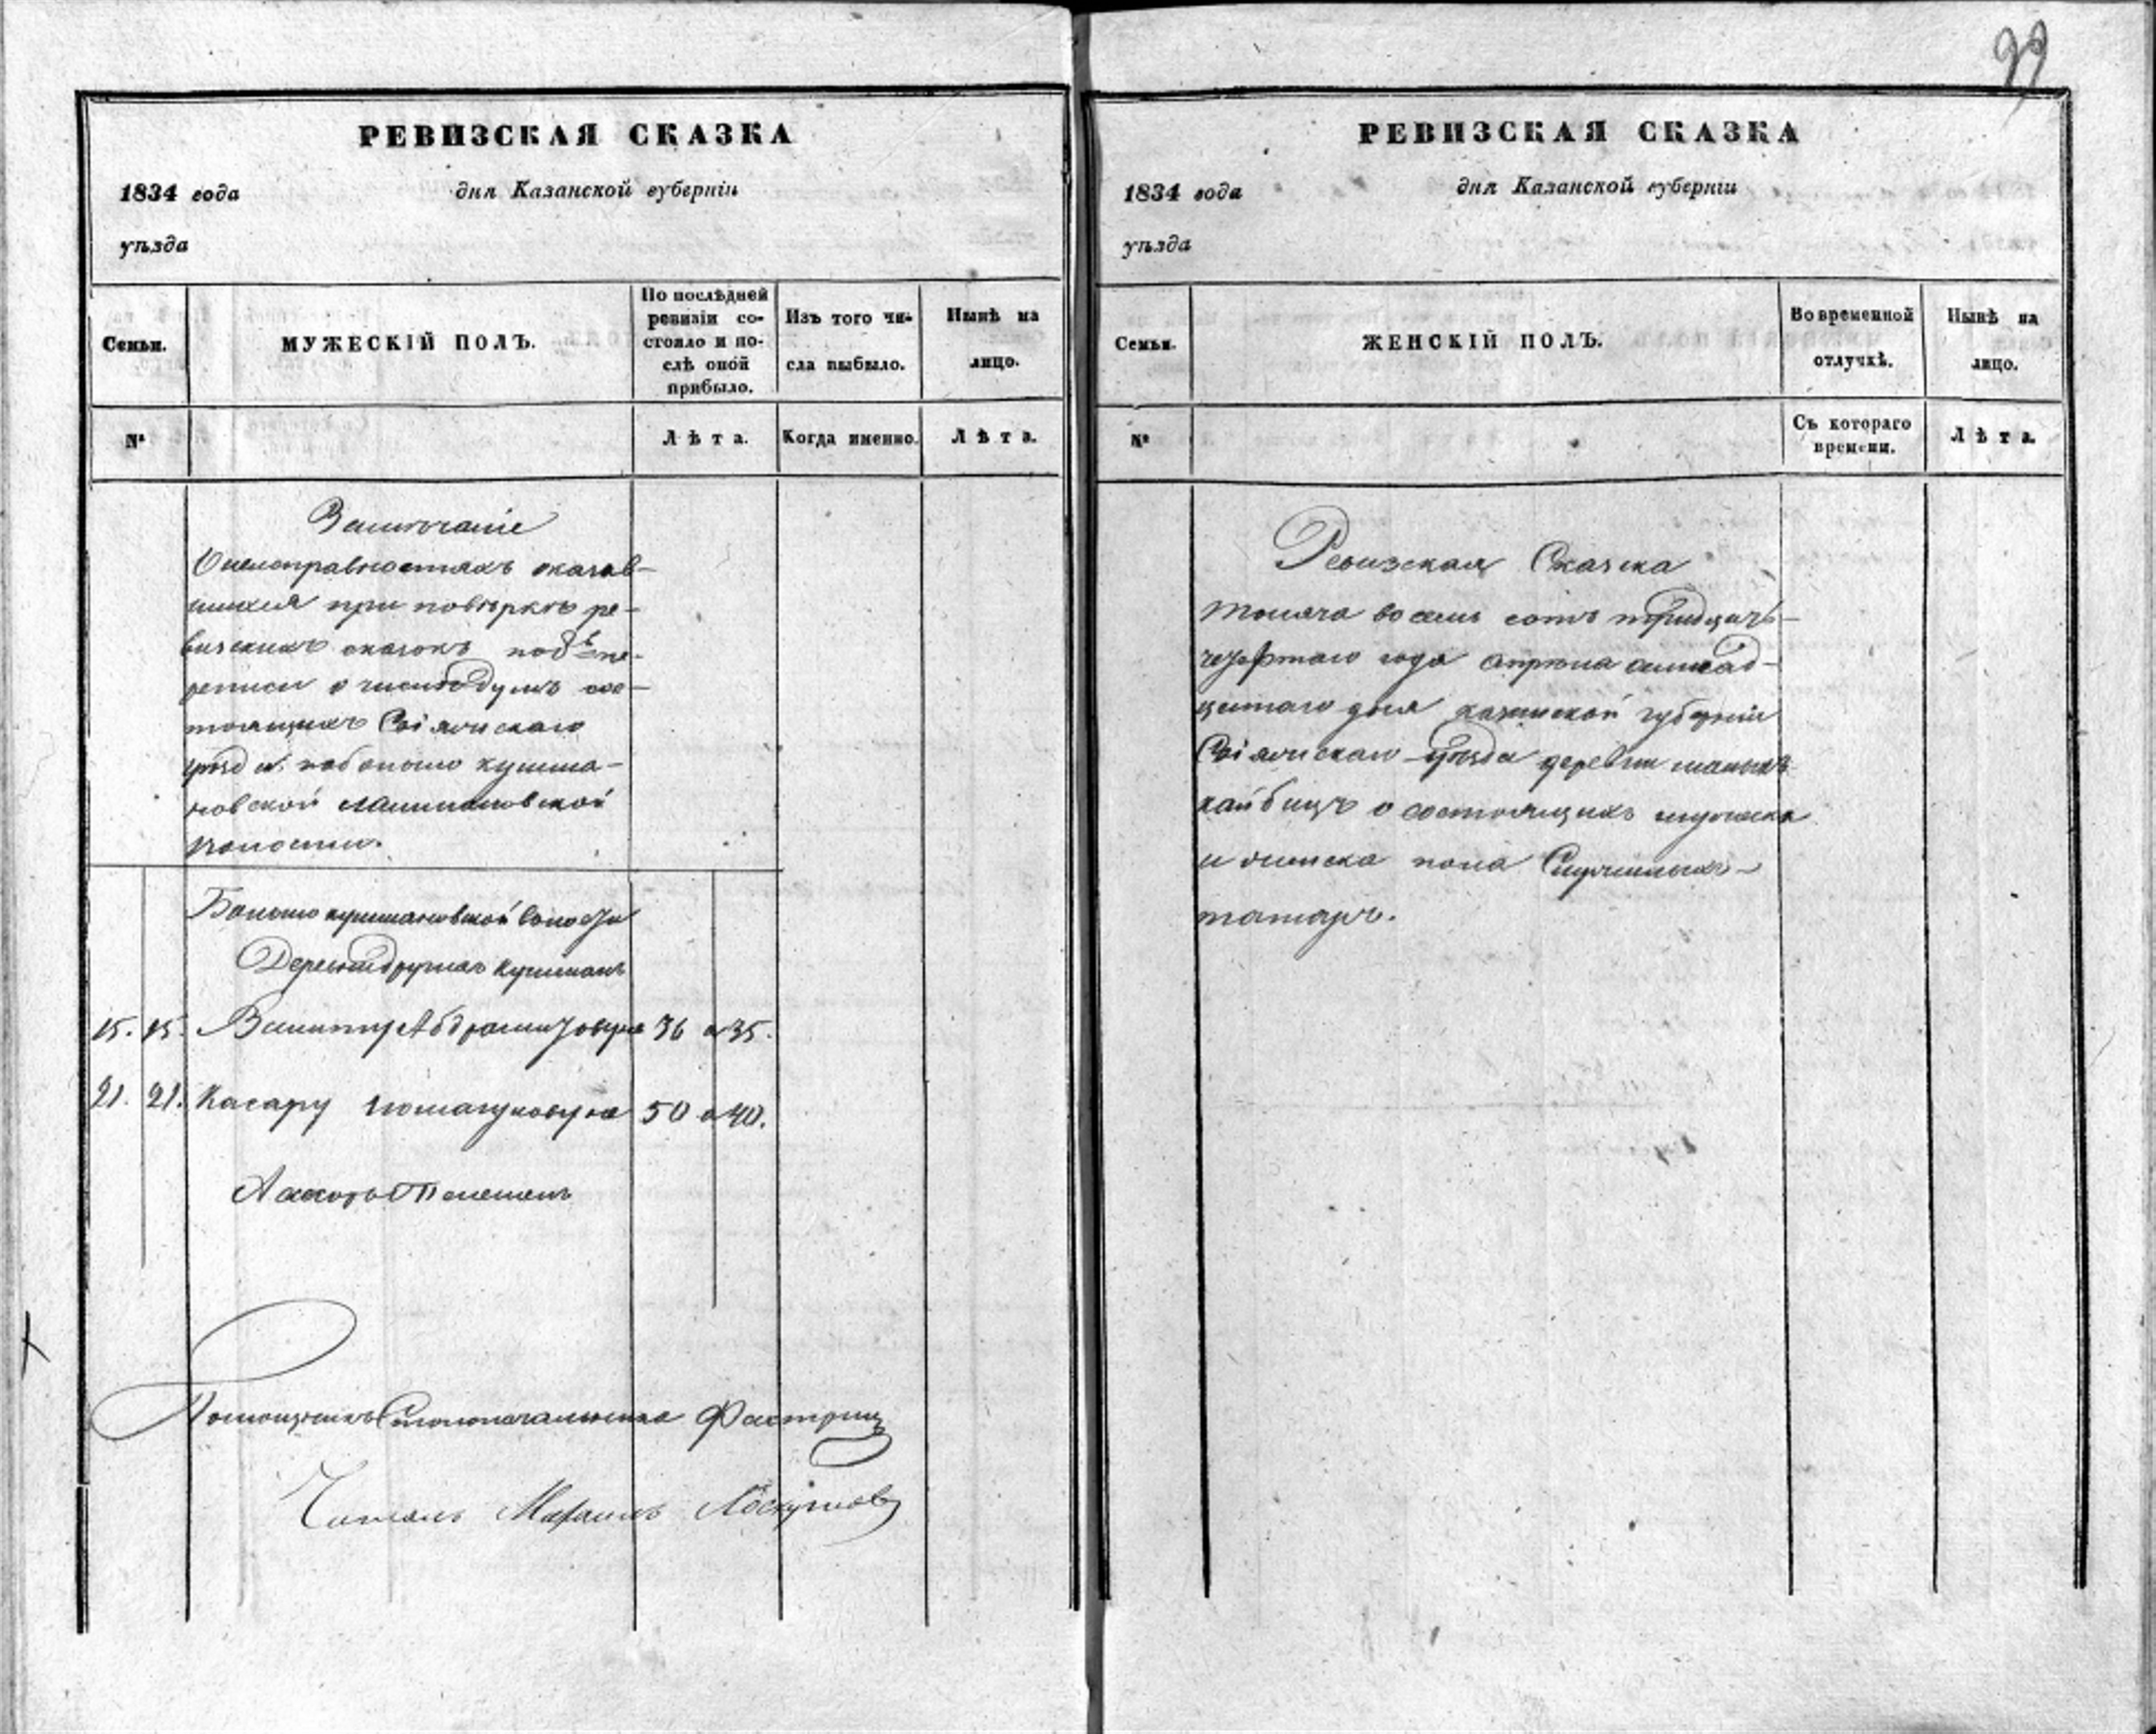 99
РЕВИЗСКАЯ СКАЗКА
1834 года дня Казанской губернiи
уѣзда
Семьи.
МУЖЕСКIЙ ПОЛЪ.
По послѣдней ревизiи со-
стояло и по-
слѣ оной
прибыло.
Изъ того чи-
сла выбыло.
Нынѣ на
лицо.
№
Лѣта.
Когда именно.
Лѣта.
Замѣчанiе
О неисправностяхъ оказав-
шихся при повѣркѣ ре-
визскихъ сказокъ пе-
реписи о числѣ душъ сос-
тоящихъ Свiяжскаго
уѣзда кушма-
новской
волости.
Больше кушмановской волости
Деревни Кушманъ
15. 15. 36 а 35.
21. 21. Касару 50 а 40.
Помощникъ Столоначальника
Читалъ Лоскутовъ
РЕВИЗСКАЯ СКАЗКА
1834 года дня Казанской губернiи
уѣзда
Семьи.
ЖЕНСКIЙ ПОЛЪ.
Во временной
отлучкѣ.
Нынѣ на
лицо.
№
Съ котораго
времени.
Лѣта.
Ревизская Сказка
тысяча восемь сотъ тридцать
четвертаго года апрѣля
дня казанской губернiи
Свiяжскаго уѣзда деревни малыхъ
кайбицъ о состоящихъ мужеска
и женска пола Служилыхъ
татаръ.